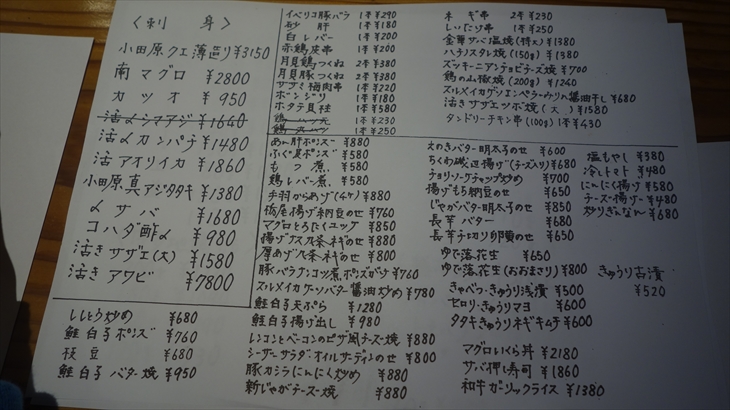 〈刺身〉
小田原クエ薄造り ¥3150
南マグロ ¥2800
カツオ ¥950
活〆シマアジ ¥1640
活〆カンパチ ¥1480
活アオリイカ ¥1860
小田原真アジタタキ ¥1380
〆サバ ¥1680
コハダ酢〆 ¥980
活きサザエ(大) ¥1580
活きアワビ ¥7800
ししとう炒め ¥680
鮭白子ポンズ ¥760
枝豆 ¥680
鮭白子バター焼 ¥950
イベリコ豚バラ 1本¥290
砂肝 1本¥180
白レバー 1本¥200
赤鶏皮串 1本¥200
月見鶏つくね 2本¥380
月見豚つくね 2本¥380
ササミ梅肉串 1本¥220
ボンジリ 1本¥180
ホタテ貝柱 1本¥580
1本¥230
1本¥250
ネギ串 2本¥230
しいたけ串 1本¥250
金華サバ塩焼(特大) ¥1380
ハラミステーキ(150g) ¥1380
ズッキーニアンチョビチーズ焼 ¥700
鶏の山椒焼(200g) ¥1240
¥680
活きサザエツボ焼(大) ¥1580
タンドリーチキン串(100g) 1本¥430
あん肝ポンズ ¥880
ふぐ皮ポンズ ¥580
もつ煮 ¥580
鶏レバー煮 ¥580
手羽からあげ(4ヶ) ¥880
栃尾揚げ納豆のせ ¥760
マグロとろたくユッケ ¥850
揚げナス九条ネギのせ ¥880
厚あげ九条ネギのせ ¥800
豚バラナンコツ煮ポンズがけ ¥760
スルメイカゲソバター醤油炒め ¥780
鮭白子天ぷら ¥1280
鮭白子揚げ出し ¥980
レンコンとベーコンのピザ風チーズ焼 ¥880
シーザーサラダ オイルサーディンのせ ¥800
豚カシラにんにく炒め ¥880
新じゃがチーズ焼 ¥880
えのきバター明太子のせ ¥600
ちくわ磯辺揚げ(チーズ入り) ¥680
チョリソーケチャップ炒め ¥700
揚げもち納豆のせ ¥650
じゃがバター明太子のせ ¥850
長芋バター ¥680
長芋千切り卵黄のせ ¥650
ゆで落花生 ¥650
ゆで落花生(おおまさり) ¥800
きゃべつ・きゅうり浅漬 ¥500
セロリ・きゅうりマヨ ¥600
タタキきゅうりネギキムチ ¥600
塩もやし ¥380
冷しトマト ¥480
にんにく揚げ ¥580
チーズ揚げ ¥480
炒りぎんなん ¥680
きゅうり古漬 ¥520
マグロいくら丼 ¥2180
サバ押し寿司 ¥1860
和牛ガーリックライス ¥1380